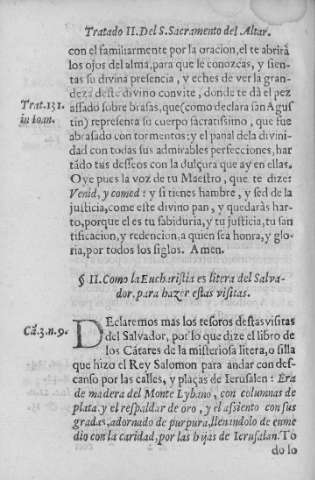 Tratado II. Del S. Sacramento del Altar.
con el familiarmente por la oracion, el te abrirà
los ojos del alma, para que le conozcas, y sien-
tas su divina presencia, y eches de ver la gran-
deza deste divino convite, donde te dà el pez
Trat. 131.
in Ioan.
assado sobre brasas, que (como declara san Agus
tin) representa su cuerpo sacratissimo, que fue
abrasado con tormentos: y el panal de la divini-
dad con todas sus admirables perfecciones, har
tãdo tus desseos con la dulçura que ay en ellas.
Oye pues la voz de tu Maestro, que te dize:
Venid, y comed: y si tienes hambre, y sed de la
justicia, come este divino pan, y quedaràs har-
to, porque el es tu sabiduria, y tu justicia, tu san
tificacion, y redencion, a quien sea honra, y glo-
ria, por todos los siglos. Amen.
§ II. Como la Eucharistia es litera del Salva-
dor, para hazer estas visitas.
Cã. 3. n. 9.
DEclaremos mas los tesoros destas visitas
del Salvador, por lo que dize el libro de
los Cãtares de la misteriosa litera, o silla
que hizo el Rey Salomon para andar con des-
canso por las calles, y plaças de Ierusalen: Era
de madera del Monte Lybano, con columnas de
plata, y el respaldar de oro, y el assiento con sus
gradas, adornado de purpura, llenandolo de enme
dio con la caridad, por las hijas de Ierusalan. To
do lo